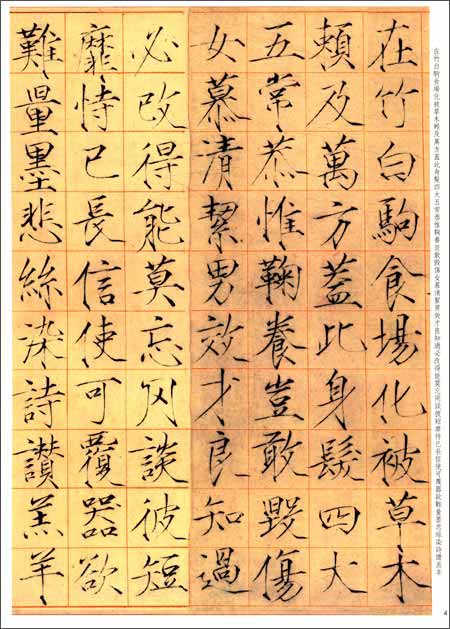 在竹白駒食場化被草木
賴及萬方蓋此身髮四大
五常恭惟鞠養豈敢毀傷
女慕清絜男效才良知過
必改得能莫忘罔談彼短
靡恃己長信使可覆器欲
難量墨悲絲染詩讚羔羊
在竹白駒食場化被草木賴及萬方蓋此身髮四大五常恭惟鞠養豈敢毀傷女慕清絜男效才良知過必改得能莫忘罔談彼短靡恃己長信使可覆器欲難量墨悲絲染詩讚羔羊
4